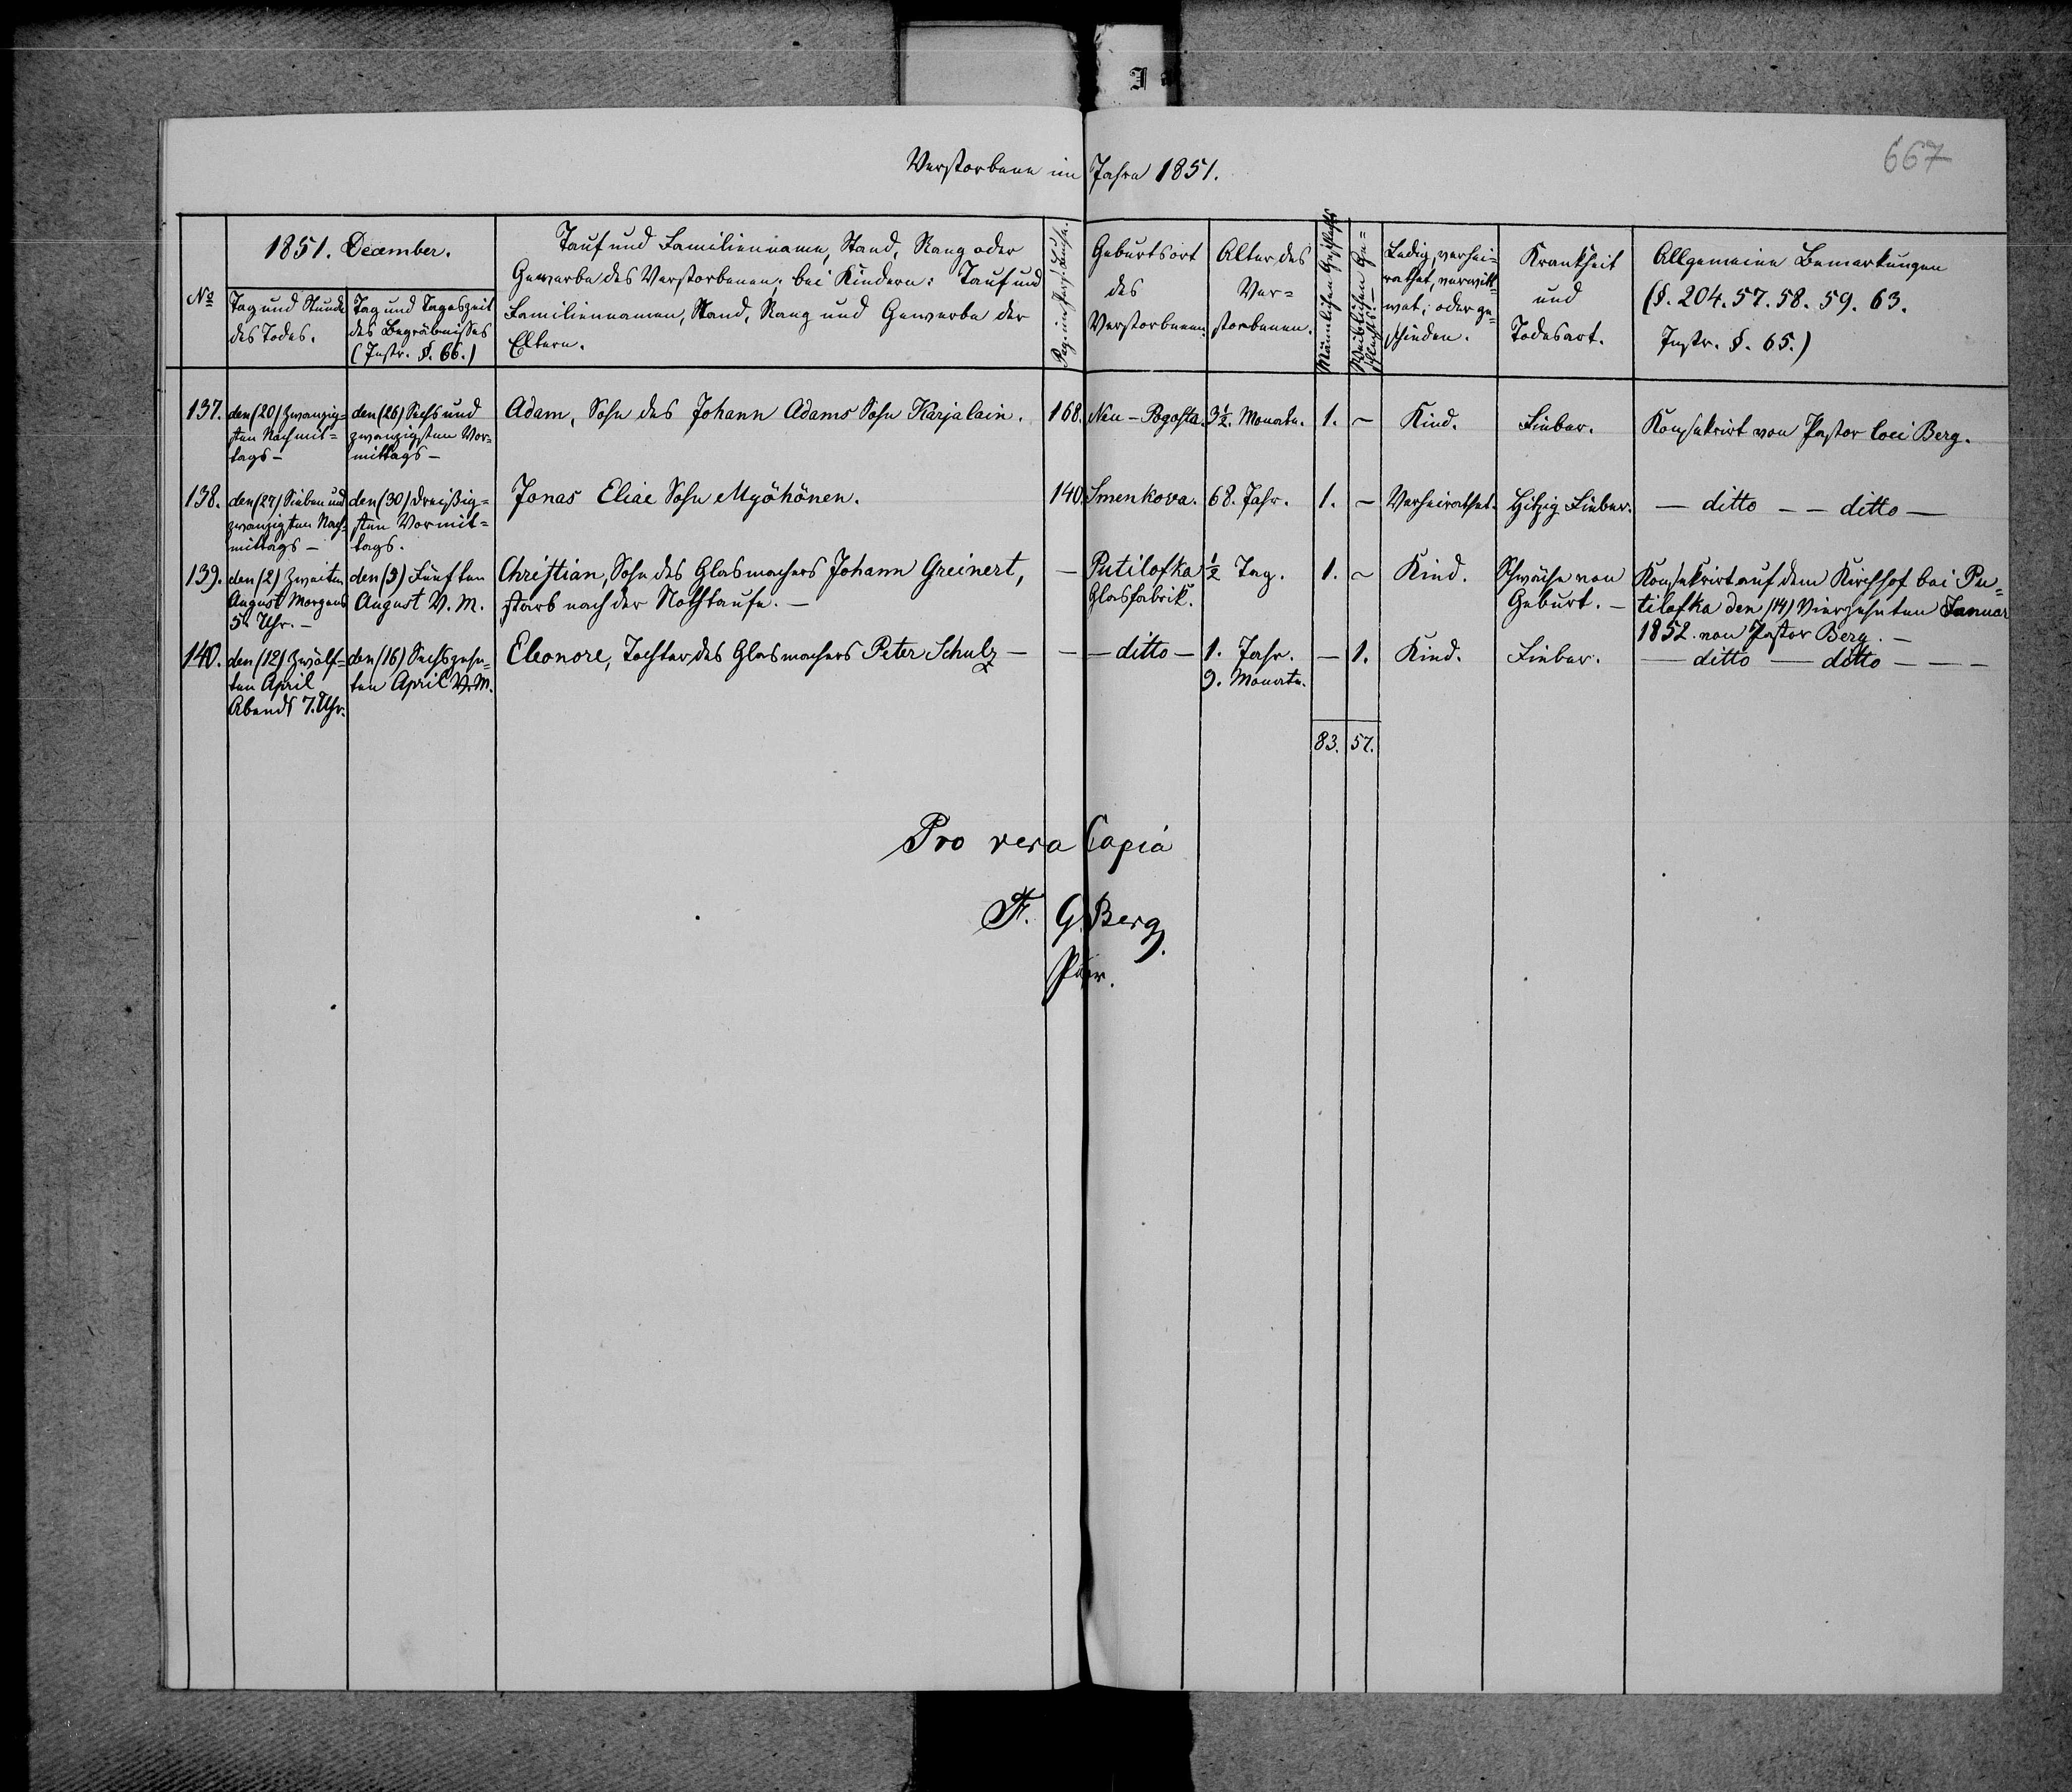 I
667
Verstorbene im Jahre 1851.
No
1851. December.
Tag und Stunde
des Todes.
Tag und Tageszeit
des Begräbnisses
(Instr. §. 66.)
Tauf und Familienname, Stand, Rang oder
Gewerbe des Verstorbenen; bei Kindern: Tauf und
Familiennamen, Stand, Rang und Gewerbe der
Eltern.
Geburtsort
des
Verstorbenen.
Alter des
Ver-
storbenen.
Männlichen Geschlechts
Weiblichen Ge-
schlechts.-
Ledig, verhei-
rathet, verwitt-
wet, oder ge-
schieden.
Krankheit
und
Todesart.
Allgemeine Bemerkungen
(§. 204. 57. 58. 59. 63.
Instr. §. 65.)
137. den (20) Zwanzig-
sten Nachmit-
tags -
den (26) Sechs und
zwanzigsten Vor-
mittags -
Adam, Sohn des Johann Adams Sohn Karjalain.
168.
Neu-Pogosta.
3 1/2. Monate.
1.
-
Kind.
Fieber.
Konsekrirt von Pastor loci Berg.
138. den (27) Sieben und
zwanzigsten Nach-
mittags -
den (30) Dreißig-
sten Vormit-
tags.
Jonas Eliae Sohn Myöhönen.
140.
Smenkova.
68. Jahr.
1.
-
Verheirathet.
Hitzig Fieber.
- ditto - - ditto -
139. den (2) Zweiten
August Morgens
5. Uhr. -
Fünften
August V. M.
Christian, Sohn des Glasmachers Johann Greinert,
starb nach der Nothtaufe. -
-
Putilofka
Glasfabrik.
1/2 Tag.
1.
-
Kind.
Schwäche von
Geburt. -
Konsekrirt auf dem Kirchhof bei Pu-
tilofka den (14) Vierzehnten Januar
1852. von Pastor Berg. -
140. den (12) Zwölf-
ten April
Abends 7. Uhr.
den (16) Sechszehn-
ten April V. M.
Eleonore, Tochter des Glasmachers Peter Schulz -
-
- ditto -
1. Jahr.
9. Monate.
-
1.
Kind.
Fieber.
- ditto - ditto - - -
83. 57.
Pro vera Copia
F. G. Berg.